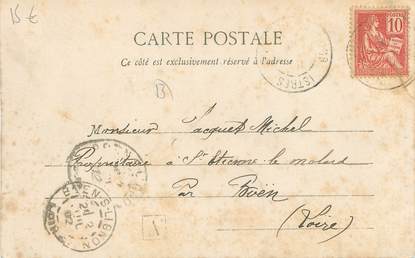 15 €
CARTE POSTALE
Ce côté est exclusivement réservé à l'adresse
POSTES
10
ISTRES
B
Monsieur Jacquet Michel
Propriétaire à St Etienne le molard
Par Boën
(Loire)
BOEN-S-LIGNON